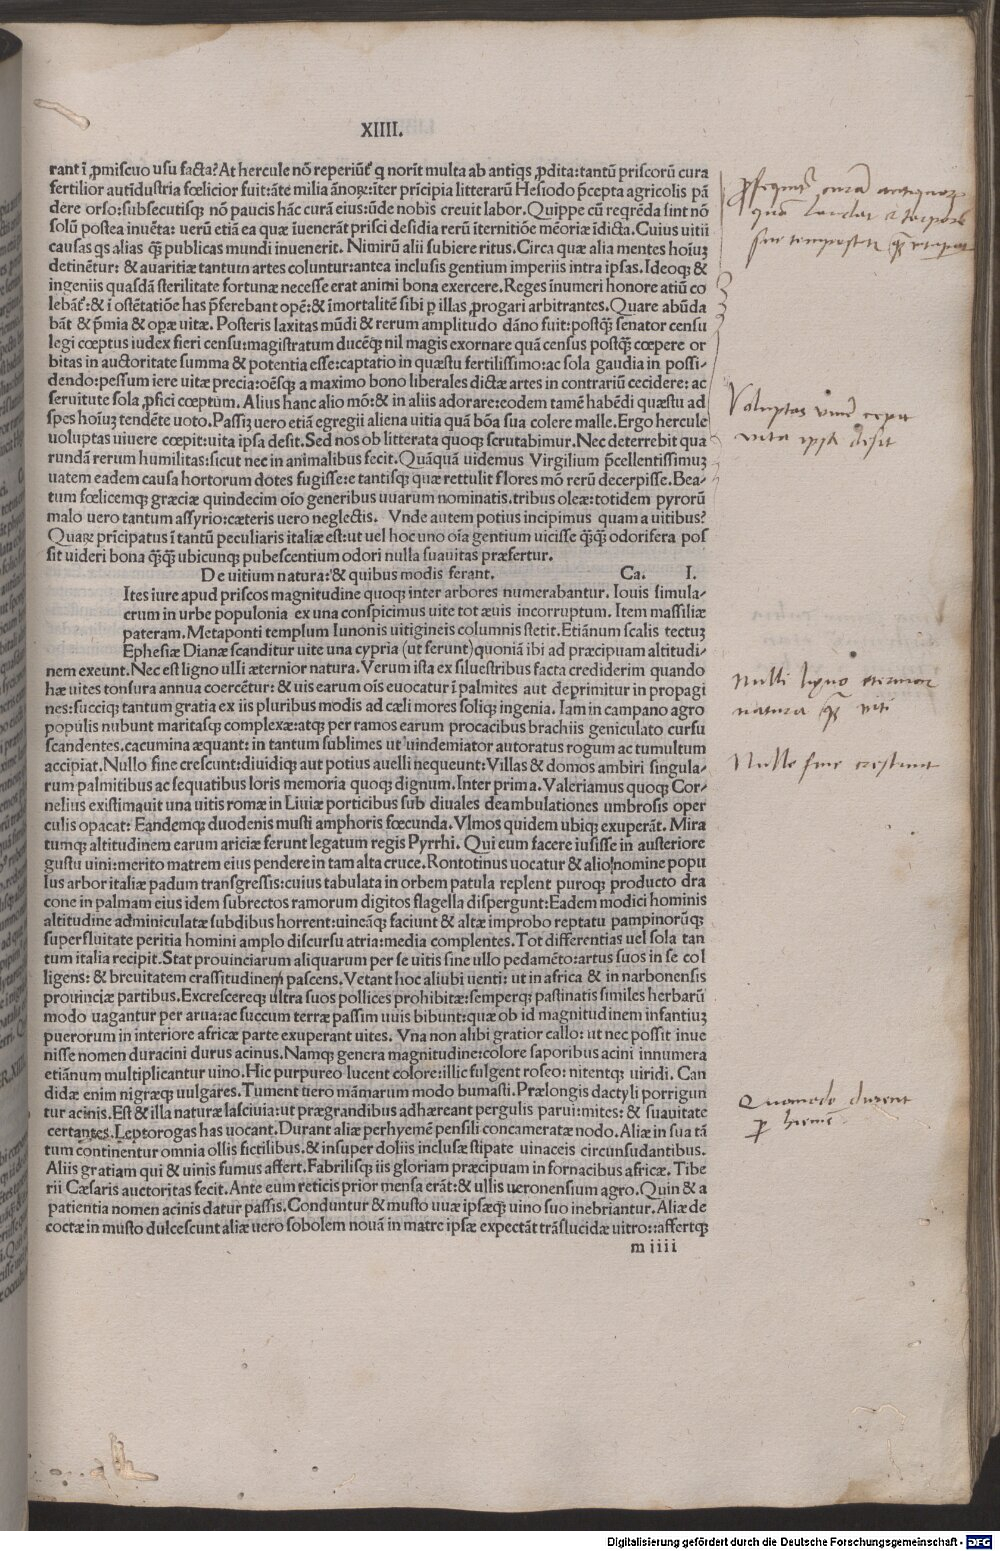 XIIII.
rant ĩ ꝓmiscuo usu facta? At hercule nõ reperiũt᷑ q norĩt multa ab antiqs ꝓdita: tantũ priscorũ cura
fertilior autĩdustria fœlicior fuit: ãte milia ãnoꝝ: ĩter prĩcipia litterarũ Hesiodo p̃cepta agricolis pã
dere orso: subsecutisqꝫ nõ paucis hãc curã eius: ũde nobis creuit labor. Quippe cũ reqrẽda sint nõ
solũ postea inuẽta: uerũ etiã ea quæ iuenerãt prisci desidia rerũ iternitiõe mẽoriæ ĩdicta. Cuius uitii
causas qs alias q̃ꝫ publicas mundi inuenerit. Nimirũ alii subiere ritus. Circa quæ alia mentes hoiuꝫ
detinẽtur: & auaritiæ tantum artes coluntur: antea inclusis gentium imperiis intra ipsas. Ideoqꝫ &
ingeniis quasdã sterilitate fortunæ necesse erat animi bona exercere. Reges ĩnumeri honore atiũ co
lebãt᷑: & i ostẽtatiõe has p̃ferebant opẽ: & ĩmortalitẽ sibi ꝑ illas ꝓrogari arbitrantes. Quare abũda
bãt & p̃mia & opæ uitæ. Posteris laxitas mũdi & rerum amplitudo dãno fuit: postq̃ꝫ senator censu
legi cœptus iudex fieri censu: magistratum ducẽqꝫ nil magis exornare quã census postq̃ꝫ cœpere or
bitas in auctoritate summa & potentia esse: captatio in quæstu fertilissimo: ac sola gaudia in possi-
dendo: pessum iere uitæ precia: oẽsqꝫ a maximo bono liberales dictæ artes in contrariũ cecidere: ac
seruitute sola ꝓfici cœptum. Alius hanc alio mõ: & in aliis adorare: eodem tamẽ habẽdi quæstu ad
spes hoiuꝫ tendẽte uoto. Passiꝫ uero etiã egregii aliena uitia quã bõa sua colere malle. Ergo hercule
uoluptas uiuere cœpit: uita ipsa desit. Sed nos ob litterata quoqꝫ scrutabimur. Nec deterrebit qua
rundã rerum humilitas: sicut nec in animalibus fecit. Quãquã uidemus Virgilium p̃cellentissimuꝫ
uatem eadem causa hortorum dotes fugisse: e tantisqꝫ quæ rettulit flores mõ rerũ decerpisse. Bea-
tum fœlicemqꝫ græciæ quindecim oĩo generibus uuarum nominatis. tribus oleæ: totidem pyrorũ
malo uero tantum assyrio: cæteris uero neglectis. Vnde autem potius incipimus quam a uitibus?
Quaꝝ prĩcipatus ĩ tantũ peculiaris italiæ est: ut uel hoc uno oĩa gentium uicisse q̃ꝫq̃ꝫ odorifera pos
sit uideri bona q̃ꝫq̃ꝫ ubicunqꝫ pubescentium odori nulla suauitas præfertur.
De uitium natura: & quibus modis ferant. Ca. I.
Ites iure apud priscos magnitudine quoqꝫ inter arbores numerabantur. Iouis simula-
crum in urbe populonia ex una conspicimus uite tot æuis incorruptum. Item massiliæ
pateram. Metaponti templum Iunonis uitigineis columnis stetit. Etiãnum scalis tectuꝫ
Ephesiæ Dianæ scanditur uite una cypria (ut ferunt) quoniã ibi ad præcipuam altitudi-
nem exeunt. Nec est ligno ulli æternior natura. Verum ista ex siluestribus facta crediderim quando
hæ uites tonsura annua coercẽtur: & uis earum oĩs euocatur ĩ palmites aut deprimitur in propagi
nes: succiqꝫ tantum gratia ex iis pluribus modis ad cæli mores soliqꝫ ingenia. Iam in campano agro
populis nubunt maritasqꝫ complexæ: atqꝫ per ramos earum procacibus brachiis geniculato cursu
scandentes. cacumina æquant: in tantum sublimes ut uindemiator autoratus rogum ac tumultum
accipiat. Nullo fine crescunt: diuidiqꝫ aut potius auelli nequeunt: Villas & domos ambiri singula-
rum palmitibus ac sequatibus loris memoria quoqꝫ dignum. Inter prima. Valeriamus quoqꝫ Cor-
nelius existimauit una uitis romæ in Liuiæ porticibus sub diuales deambulationes umbrosis oper
culis opacat: Eandemqꝫ duodenis musti amphoris fœcunda. Vlmos quidem ubiqꝫ exuperãt. Mira
tumqꝫ altitudinem earum ariciæ ferunt legatum regis Pyrrhi. Qui eum facere iusisse in austeriore
gustu uini: merito matrem eius pendere in tam alta cruce. Rontotinus uocatur & alio nomine popu
lus arbor italiæ padum transgressis: cuius tabulata in orbem patula replent puroqꝫ producto dra
cone in palmam eius idem subrectos ramorum digitos flagella dispergunt: Eadem modici hominis
altitudine adminiculatæ subdibus horrent: uineãqꝫ faciunt & altæ improbo reptatu pampinorũqꝫ
superfluitate peritia homini amplo discursu atria: media complentes. Tot differentias uel sola tan
tum italia recipit. Stat prouinciarum aliquarum per se uitis sine ullo pedamẽto: artus suos in se col
ligens: & breuitatem crassitudinem pascens. Vetant hoc aliubi uenti: ut in africa & in narbonensis
prouinciæ partibus. Excrescereqꝫ ultra suos pollices prohibitæ: semperqꝫ pastinatis similes herbarũ
modo uagantur per arua: ac succum terræ passim uuis bibunt: quæ ob id magnitudinem infantiuꝫ
puerorum in interiore africæ parte exuperant uites. Vna non alibi gratior callo: ut nec possit inue
nisse nomen duracini durus acinus. Namqꝫ genera magnitudine: colore saporibus acini innumera
etiãnum multiplicantur uino. Hic purpureo lucent colore: illic fulgent roseo: nitentqꝫ uiridi. Can
didæ enim nigræqꝫ uulgares. Tument tiero mãmarum modo bumasti. Prælongis dactyli porrigun
tur acinis. Est & illa naturæ lasciuia: ut prægrandibus adhæreant pergulis parui: mites: & suauitate
certantes. Leptorogas has uocant. Durant aliæ perhyemẽ pensili concameratæ nodo. Aliæ in sua tã
tum continentur omnia ollis fictilibus. & insuper doliis inclusæ stipate uinaceis circunsudantibus.
Aliis gratiam qui & uinis fumus affert. Fabrilisqꝫ iis gloriam præcipuam in fornacibus africæ. Tibe
rii Cæsaris auctoritas fecit. Ante eum reticis prior mensa erãt: & ullis ueronensium agro. Quin & a
patientia nomen acinis datur passis. Conduntur & musto uuæ ipsæqꝫ uino suo inebriantur. Aliæ de
coctæ in musto dulcescunt aliæ uero sobolem nouã in matre ipsæ expectãt trãslucidæ uitro:: affertqꝫ
m iiii
curã antiquoꝝ
Voluptas uiuere cepit
uita ipsa desit
Nulli ligno eternior
natura q̃ꝫ uiti
Nullo fine crescunt
Quomodo durent
ꝑ hiemẽ
Digitalisierung gefördert durch die Deutsche Forschungsgemeinschaft - DFG